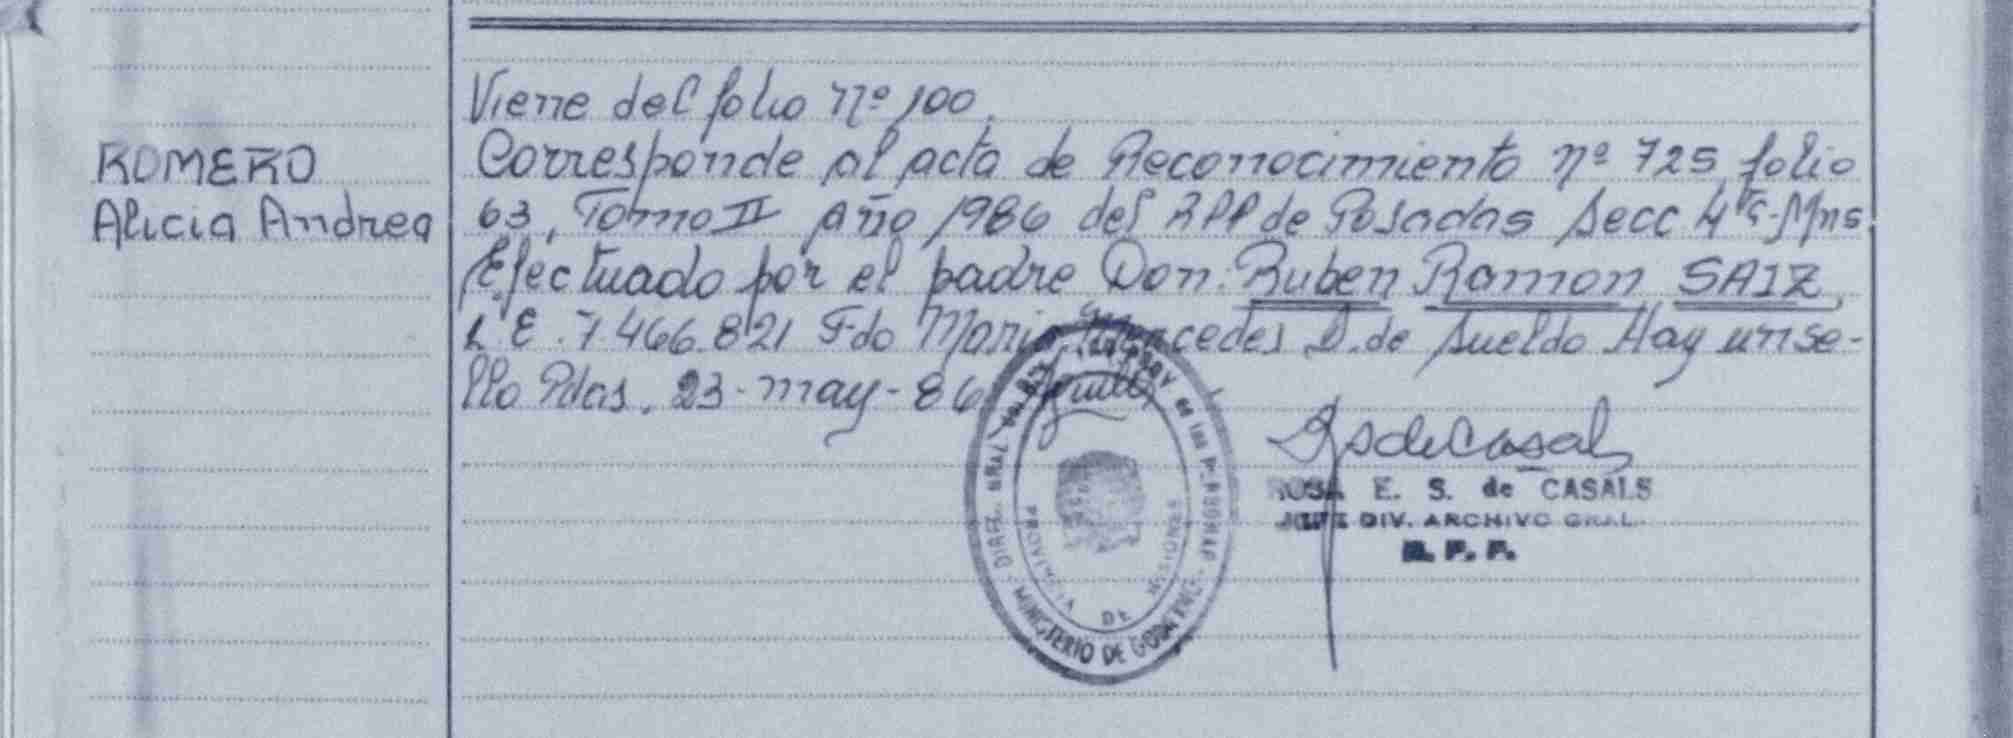 Viene del folio nº 100.
ROMERO
Alicia Andrea
Corresponde al acta de Reconocimiento nº 725 folio
63, Tomo II año 1986 del RPP de Posadas Secc 4ª-Mns
Efectuado por el padre Don: Ruben Ramon SAIZ,
L E. 7.466.821 Fdo Maria Mercedes D. de Sueldo Hay un se-
llo Pdas, 23-may-86
ROSA E. S. de CASALS
JEFE DIV. ARCHIVO GRAL.
R. P. P.
PROVINCIA DE MISIONES
MINISTERIO DE GOBIERNO